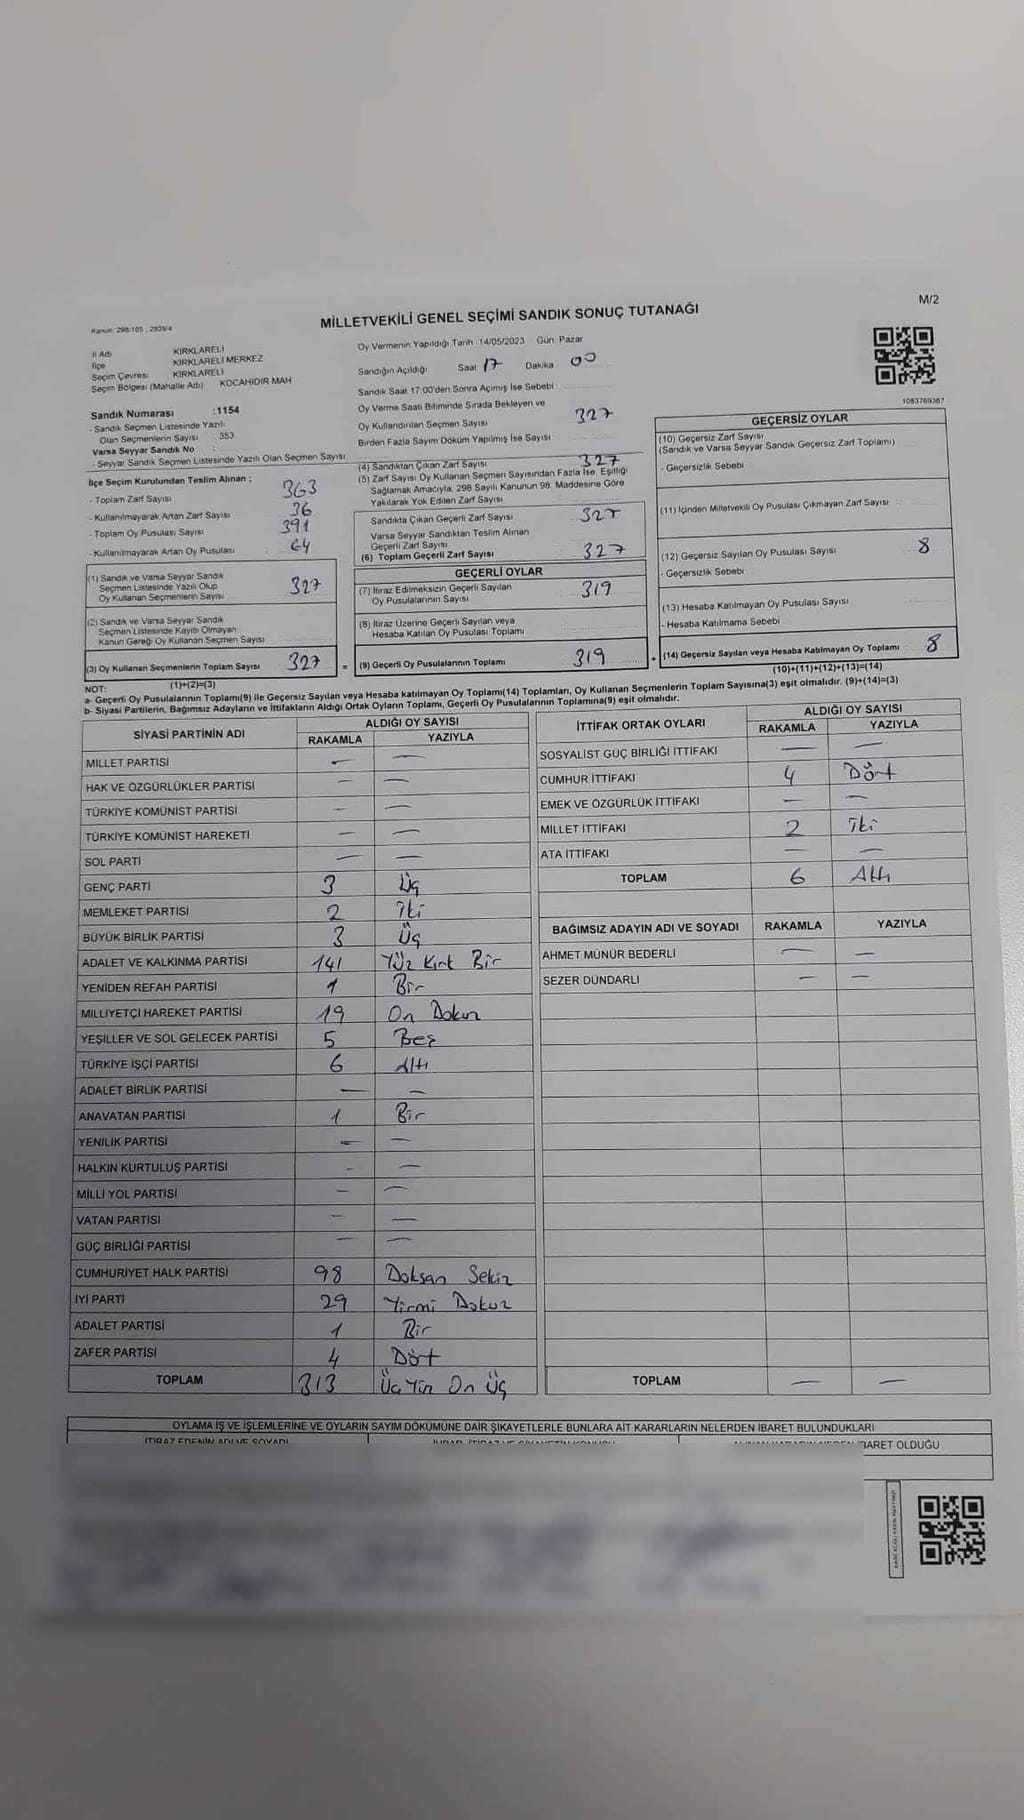 M/2
MİLLETVEKİLİ GENEL SEÇİMİ SANDIK SONUÇ TUTANAĞI
Kanun: 298/105 , 2839/4
İl Adı KIRKLARELİ
İlçe KIRKLARELİ MERKEZ
Seçim Çevresi KIRKLARELİ
Seçim Bölgesi (Mahalle Adı) KOCAHIDIR MAH
Sandık Numarası :1154
- Sandık Seçmen Listesinde Yazılı
Olan Seçmenlerin Sayısı : 353
Varsa Seyyar Sandık No :
- Seyyar Sandık Seçmen Listesinde Yazılı Olan Seçmen Sayısı:
İlçe Seçim Kurulundan Teslim Alınan ;
- Toplam Zarf Sayısı 363
- Kullanılmayarak Artan Zarf Sayısı 36
- Toplam Oy Pusulası Sayısı 391
- Kullanılmayarak Artan Oy Pusulası 64
(1) Sandık ve Varsa Seyyar Sandık
Seçmen Listesinde Yazılı Olup
Oy Kullanan Seçmenlerin Sayısı 327
(2) Sandık ve Varsa Seyyar Sandık
Seçmen Listesinde Kayıtlı Olmayan
Kanun Gereği Oy Kullanan Seçmen Sayısı
(3) Oy Kullanan Seçmenlerin Toplam Sayısı 327 =
(1)+(2)=(3)
Oy Vermenin Yapıldığı Tarih : 14/05/2023 Gün: Pazar
Sandığın Açıldığı Saat 17 Dakika 00
Sandık Saat 17:00'den Sonra Açımış İse Sebebi
Oy Verme Saati Bitiminde Sırada Bekleyen ve
Oy Kullandırılan Seçmen Sayısı 327
Birden Fazla Sayım Döküm Yapılmış İse Sayısı
(4) Sandıktan Çıkan Zarf Sayısı 327
(5) Zarf Sayısı Oy Kullanan Seçmen Sayısından Fazla İse, Eşitliği
Sağlamak Amacıyla, 298 Sayılı Kanunun 98. Maddesine Göre
Yakılarak Yok Edilen Zarf Sayısı
Sandıkta Çıkan Geçerli Zarf Sayısı 327
Varsa Seyyar Sandıktan Teslim Alınan
Geçerli Zarf Sayısı
(6) Toplam Geçerli Zarf Sayısı 327
GEÇERLİ OYLAR
(7) İtiraz Edilmeksizin Geçerli Sayılan
Oy Pusulalarının Sayısı 319
(8) İtiraz Üzerine Geçerli Sayılan veya
Hesaba Katılan Oy Pusulası Toplamı
(9) Geçerli Oy Pusulalarının Toplamı 319 +
1083769367
GEÇERSİZ OYLAR
(10) Geçersiz Zarf Sayısı
(Sandık ve Varsa Seyyar Sandık Geçersiz Zarf Toplamı)
- Geçersizlik Sebebi
(11) İçinden Milletvekili Oy Pusulası Çıkmayan Zarf Sayısı
(12) Geçersiz Sayılan Oy Pusulası Sayısı 8
- Geçersizlik Sebebi
(13) Hesaba Katılmayan Oy Pusulası Sayısı
- Hesaba Katılmama Sebebi
(14) Geçersiz Sayılan veya Hesaba Katılmayan Oy Toplamı 8
(10)+(11)+(12)+(13)=(14)
NOT:
a- Geçerli Oy Pusulalarının Toplamı(9) ile Geçersiz Sayılan veya Hesaba katılmayan Oy Toplamı(14) Toplamları, Oy Kullanan Seçmenlerin Toplam Sayısına(3) eşit olmalıdır. (9)+(14)=(3)
b- Siyasi Partilerin, Bağımsız Adayların ve İttifakların Aldığı Ortak Oyların Toplamı, Geçerli Oy Pusulalarının Toplamına(9) eşit olmalıdır.
SİYASİ PARTİNİN ADI ALDIĞI OY SAYISI
RAKAMLA YAZIYLA
MİLLET PARTİSİ — —
HAK VE ÖZGÜRLÜKLER PARTİSİ — —
TÜRKİYE KOMÜNİST PARTİSİ — —
TÜRKİYE KOMÜNİST HAREKETİ — —
SOL PARTİ — —
GENÇ PARTİ 3 Üç
MEMLEKET PARTİSİ 2 İki
BÜYÜK BİRLİK PARTİSİ 3 Üç
ADALET VE KALKINMA PARTİSİ 141 Yüz Kırk Bir
YENİDEN REFAH PARTİSİ 1 Bir
MİLLİYETÇİ HAREKET PARTİSİ 19 On Dokuz
YEŞİLLER VE SOL GELECEK PARTİSİ 5 Beş
TÜRKİYE İŞÇİ PARTİSİ 6 Altı
ADALET BİRLİK PARTİSİ — —
ANAVATAN PARTİSİ 1 Bir
YENİLİK PARTİSİ — —
HALKIN KURTULUŞ PARTİSİ — —
MİLLİ YOL PARTİSİ — —
VATAN PARTİSİ — —
GÜÇ BİRLİĞİ PARTİSİ — —
CUMHURİYET HALK PARTİSİ 98 Doksan Sekiz
İYİ PARTİ 29 Yirmi Dokuz
ADALET PARTİSİ 1 Bir
ZAFER PARTİSİ 4 Dört
TOPLAM 313 Üç Yüz On Üç
İTTİFAK ORTAK OYLARI ALDIĞI OY SAYISI
RAKAMLA YAZIYLA
SOSYALİST GÜÇ BİRLİĞİ İTTİFAKI — —
CUMHUR İTTİFAKI 4 Dört
EMEK VE ÖZGÜRLÜK İTTİFAKI — —
MİLLET İTTİFAKI 2 İki
ATA İTTİFAKI — —
TOPLAM 6 Altı
BAĞIMSIZ ADAYIN ADI VE SOYADI RAKAMLA YAZIYLA
AHMET MÜNÜR BEDERLİ — —
SEZER DÜNDARLI — —
TOPLAM — —
OYLAMA İŞ VE İŞLEMLERİNE VE OYLARIN SAYIM DÖKÜMÜNE DAİR ŞİKAYETLERLE BUNLARA AİT KARARLARIN NELERDEN İBARET BULUNDUKLARI
İTİRAZ EDENİN ADI VE SOYADI
İBARET OLDUĞU